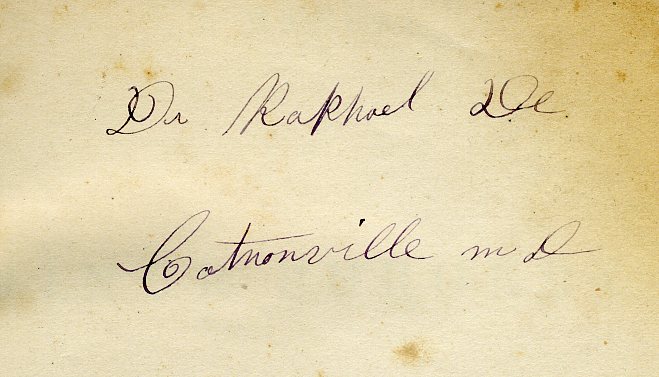 Dr. Raphael De.
Catnonville m D